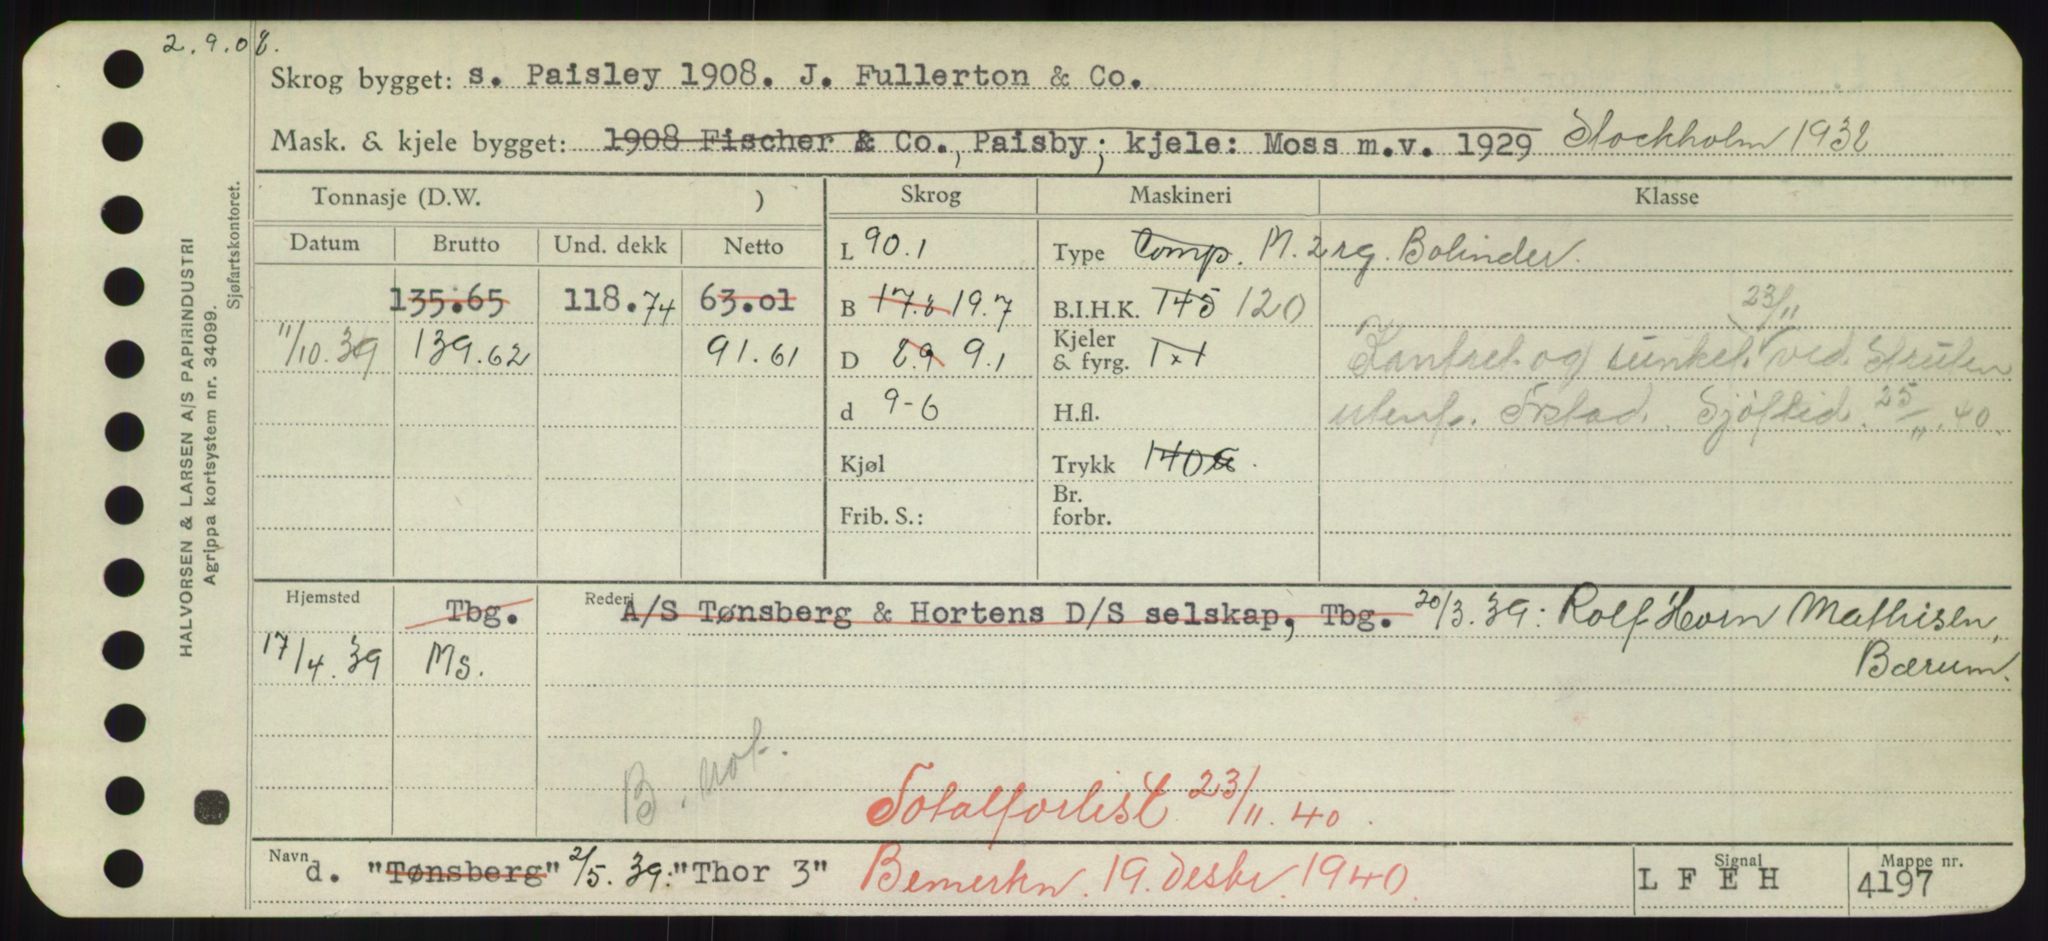 2.9.08.
Skrog bygget: s. Paisley 1908. J. Fullerton & Co.
Mask. & kjele bygget: 1908 Fischer & Co., Paisby; kjele: Moss m.v. 1929 Stockholm 1932
Tonnasje (D.W. ) Skrog Maskineri Klasse
Datum Brutto Und. dekk Netto
L 90.1 Type Comp. M. 2 rg. Bolinder.
135.65 118.74 63.01 B 17.2 19.7 B.I.H.K. 145 120 23/11
11/10.39 139.62 91.61 D 8.9 9.1 Kjeler & fyrg. 1x1 Kantret og sunket ved Struten
d 9-6 H.fl. utenf. Frstad. Sjøftid. 25/11.40.
Kjøl Trykk 140
Frib. S.: Br. forbr.
Hjemsted Tbg. Rederi A/S Tønsberg & Hortens D/S selskap, Tbg. 20/3.39: Rolf Horn Mathisen,
17/4.39 Ms. Bærum.
B. not.
Totalforlist 23/11.40.
Navn d. "Tønsberg" 2/5.39: "Thor 3" Bemerkn. 19. desbr. 1940. Signal L F E H Mappe nr. 4197
HALVORSEN & LARSEN A/S PAPIRINDUSTRI
Agrippa kortsystem nr. 34099.
Sjøfartskontoret.